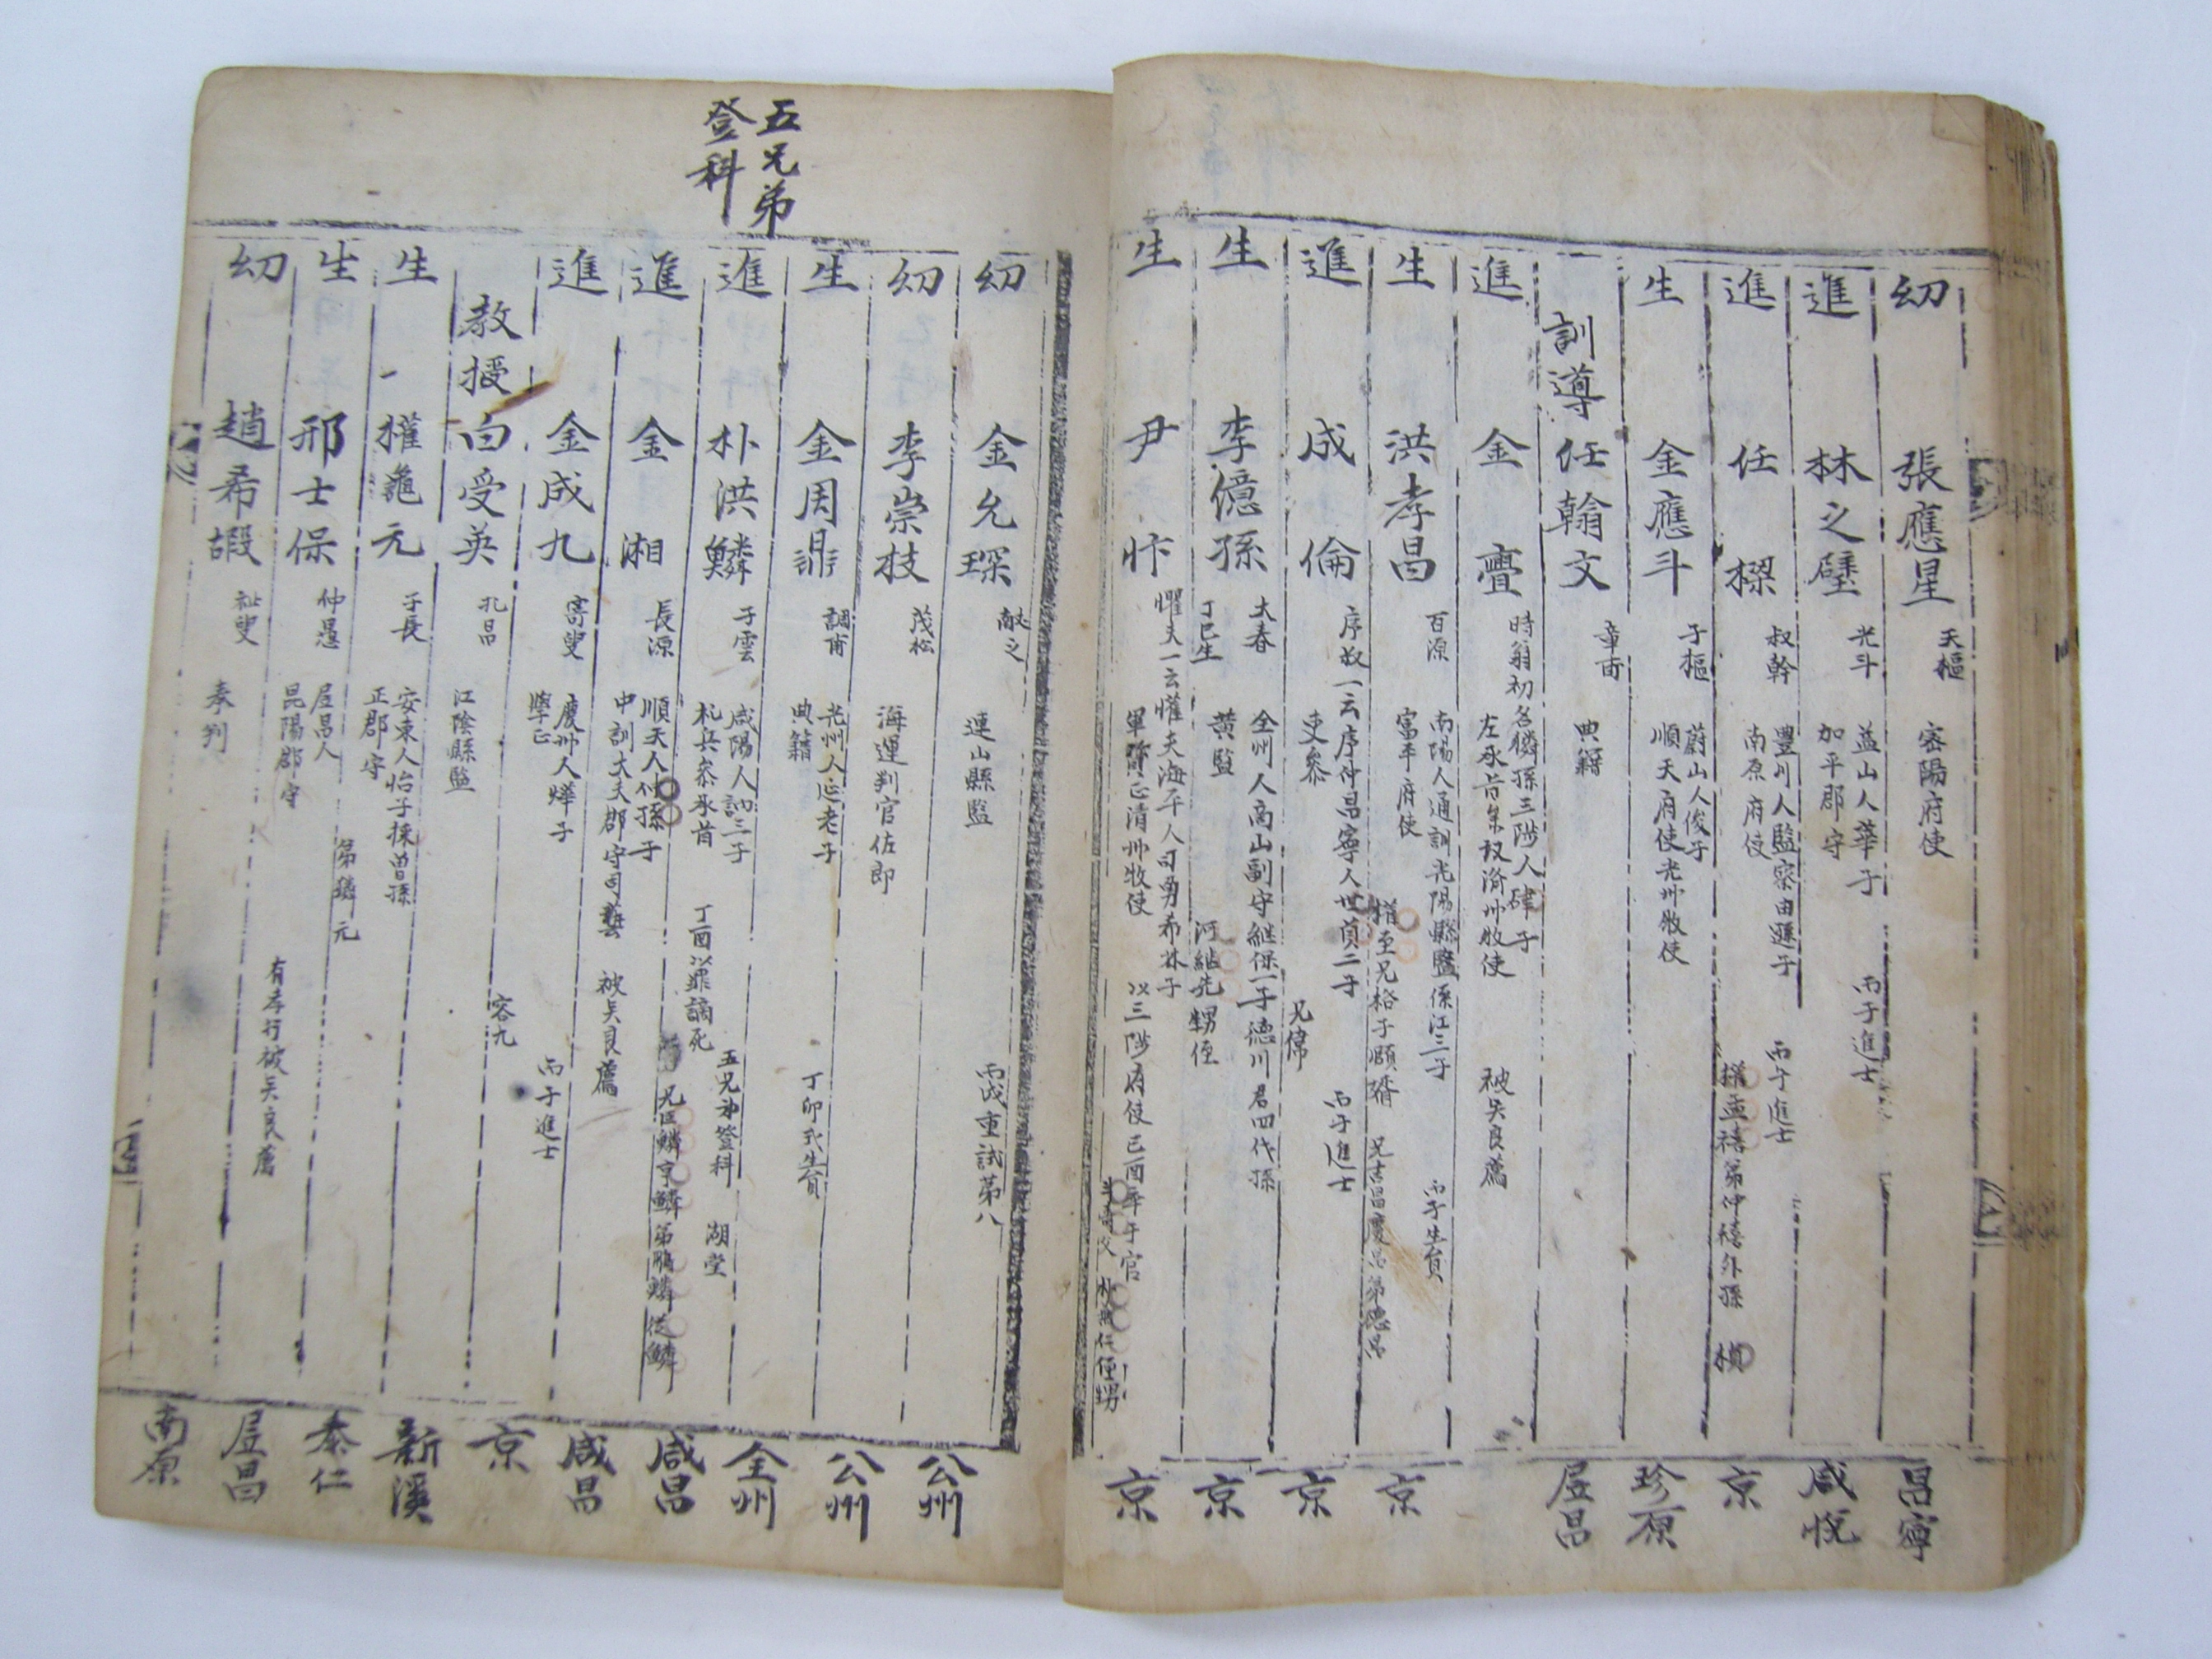 幼 張應星 天樞 密陽府使 昌寧
進 林之𤩹 光斗 益山人華子 加平郡守 丙子進士 咸悅
進 任楺 叔幹 豊川人監察由遜子 南原府使 丙子進士 孟禧弟仲禧外孫 楨 京
生 金應斗 子樞 蔚山人俊子 順天府使光州牧使 珍原
訓導 任翰文 章甫 典籍 居昌
進 金亹 時翁初名獜孫三陟人硉子 左承旨 州牧使 被吳良薦
生 洪孝昌 百源 南陽人通訓光陽縣監係江三子 富平府使 至兄格子頤婿 丙子生員 兄吉昌慶昌弟德昌 京
進 成倫 序叔一云序仲昌寧人世貞二子 吏參 兄偉 丙子進士 京
生 李億孫 大春 丁巳生 全州人高山副守継保一子德川君四代孫 黃監 河継先甥侄 京
生 尹忭 懼夫一云懽夫海平人司勇希林子 軍資正清州牧使 以三陟府使己酉年于官 京
五兄弟
登科
幼 金允琛 獻之 連山縣監 丙戌重試第八 公州
幼 李崇技 茂松 海運判官佐郎 公州
生 金周鼎 調甫 光州人延老子 典籍 丁卯式生員 全州
進 朴洪鱗 子雲 咸陽人訥三子 礼兵參承旨 丁酉以罪謫死 五兄弟登科 湖堂 兄從鱗亨鱗弟鵬鱗從鱗 咸昌
進 金湘 長源 順天人仲孫子 中訓大夫郡守司藝 被吳良薦 咸昌
進 金成九 寄叟 慶州人燁子 學正 丙子進士 京
教授 白受英 孔昌 江陰縣監 容九 新溪
生 權龜元 子長 安東人怡子採曾孫 正郡守 泰仁
生 邢士保 仲愚 居昌人 昆陽郡守 弟獜元 居昌
幼 趙希嘏 祉叟 參判 有孝行被吳良薦 南原